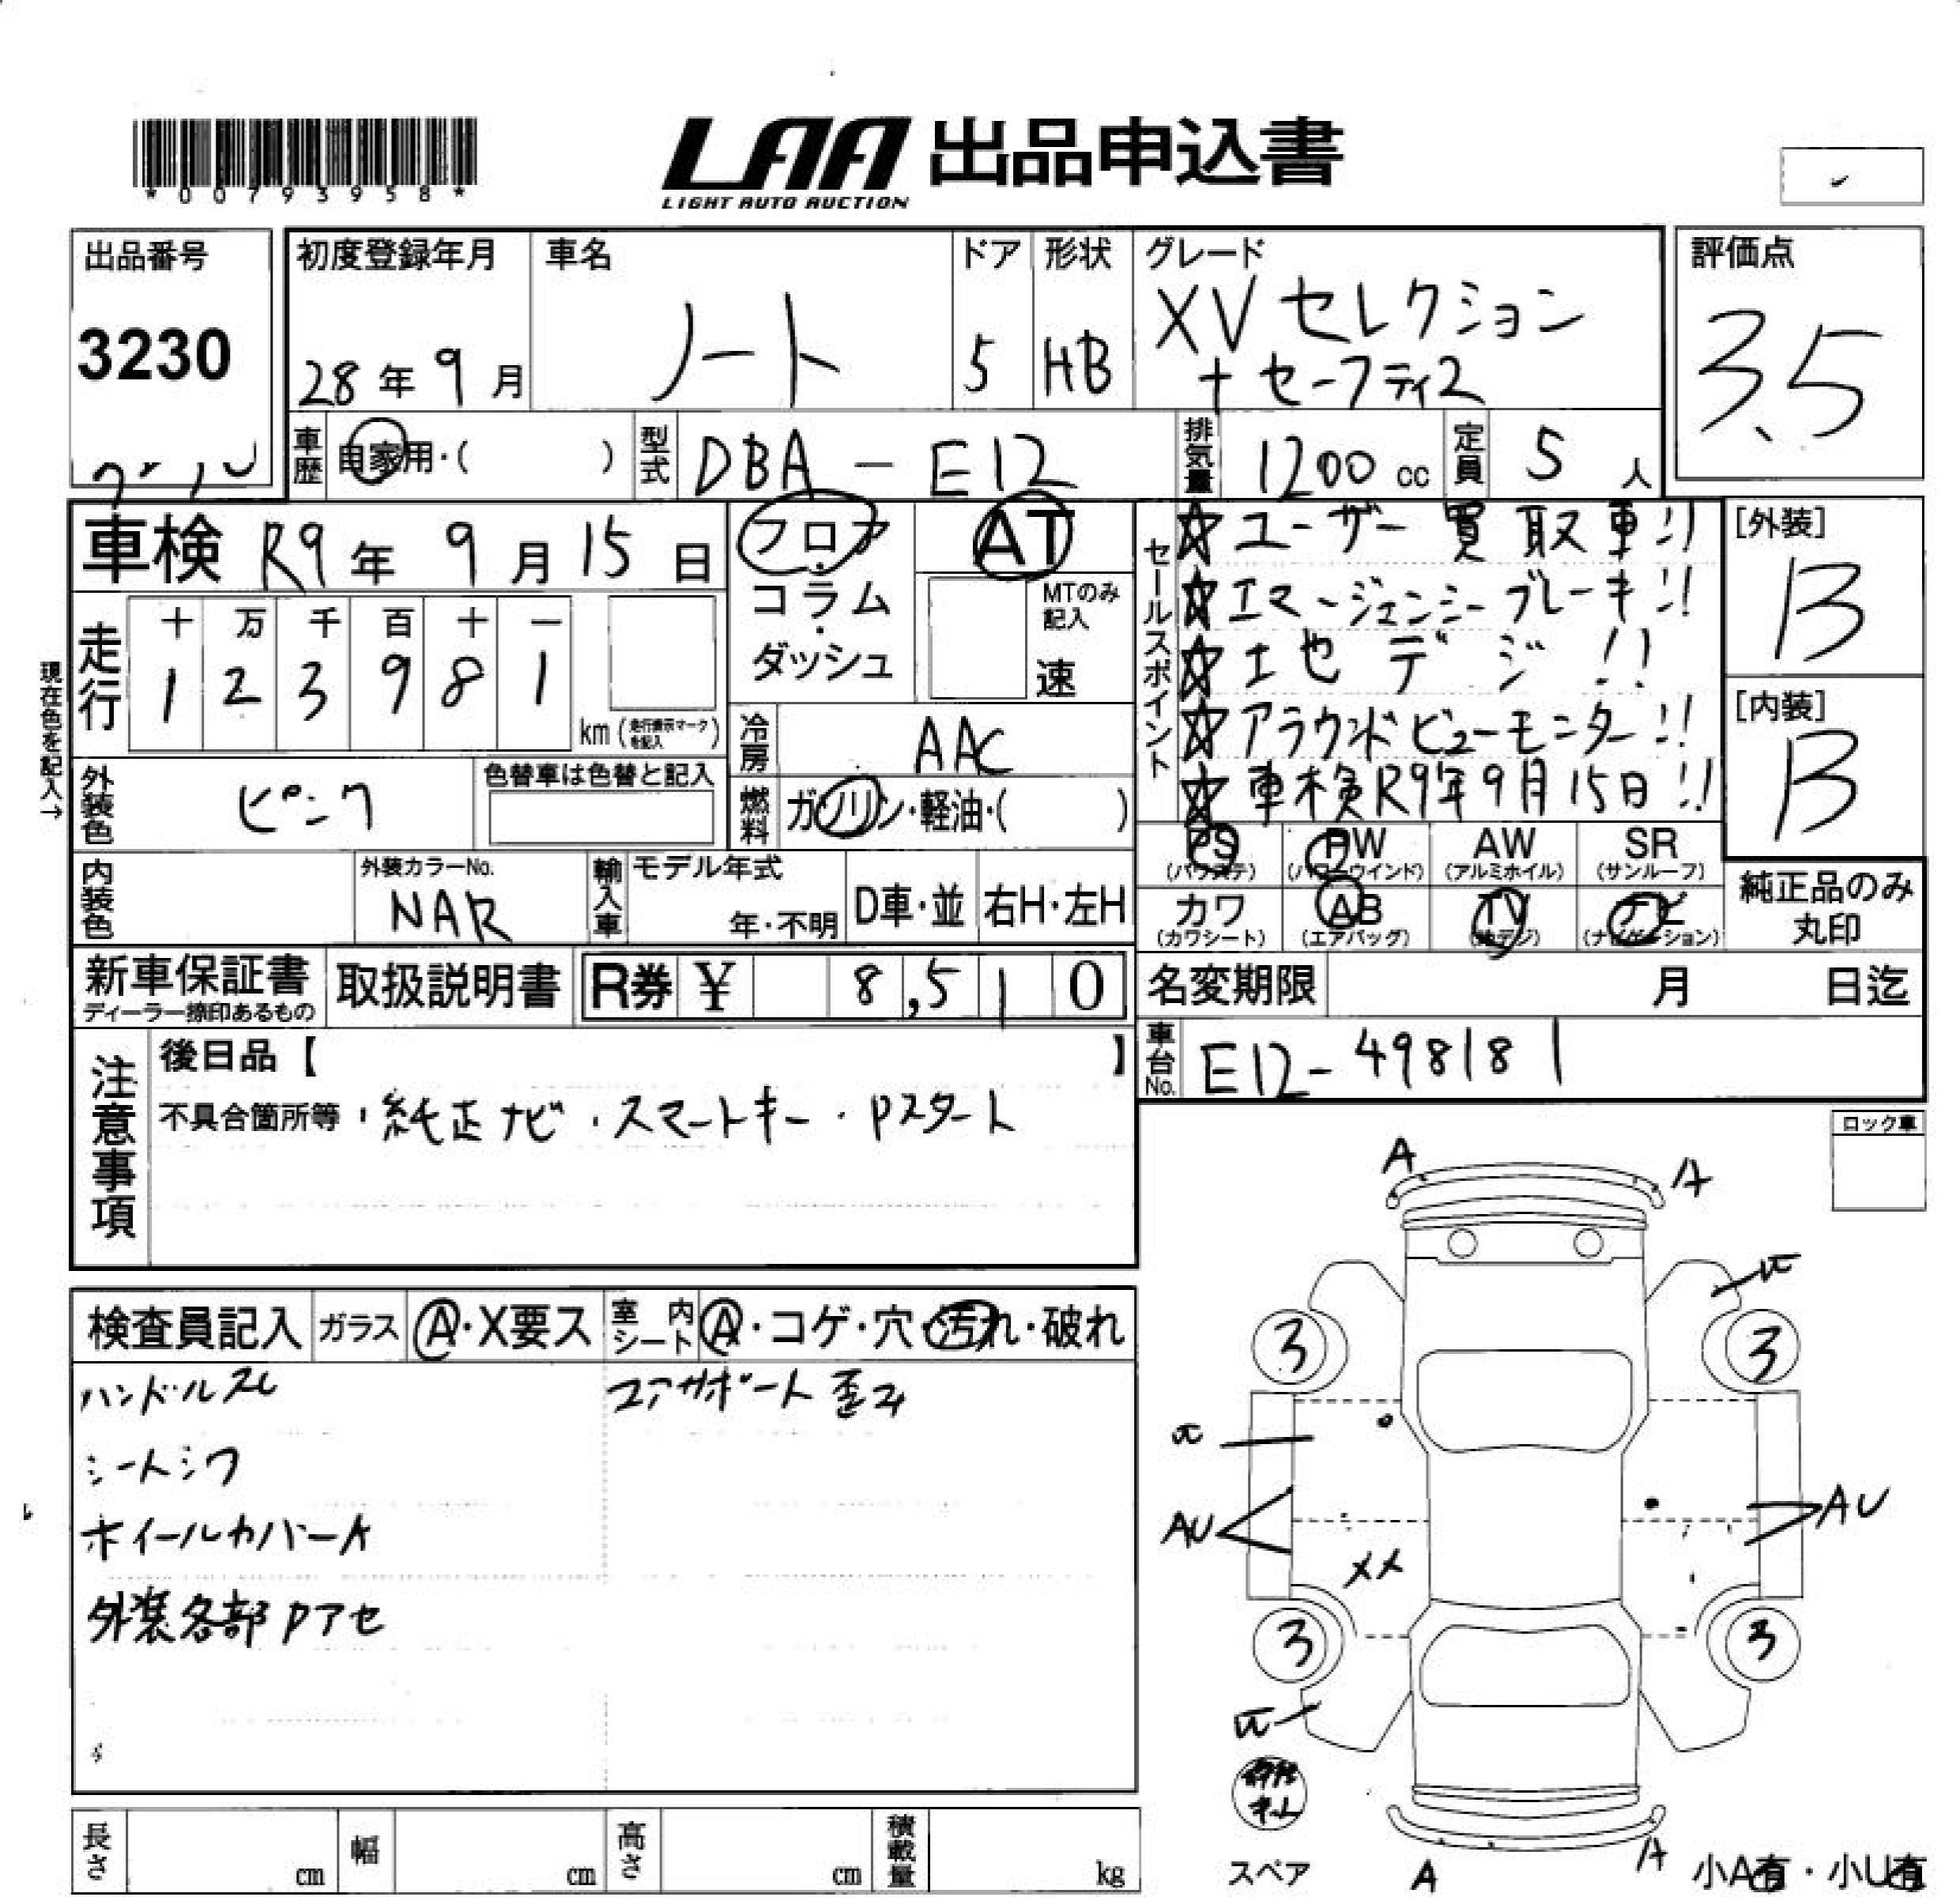 *00793958*
LAA 出品申込書
LIGHT AUTO AUCTION
出品番号
3230
初度登録年月
28年9月
車名
ノート
ドア
5
形状
HB
グレード
XVセレクション
+セーフティ2
評価点
3.5
車歴
自家用・( )
型式
DBA-E12
排気量
1200cc
定員
5人
車検 R9年9月15日
フロア・コラム・ダッシュ
AT
MTのみ記入
速
セールスポイント
☆ユーザー買取車!!
☆エマージェンシーブレーキ!!
☆地デジ!!
☆アラウンドビューモニター!!
☆車検R9年9月15日!!
[外装]
B
[内装]
B
現在色を記入→
走行
十 万 千 百 十 一
1 2 3 9 8 1
km(走行表示マークを記入)
冷房
AAC
外装色
ピンク
色替車は色替と記入
燃料
ガソリン・軽油・( )
PS
(パワステ)
PW
(パワーウインド)
AW
(アルミホイル)
SR
(サンルーフ)
カワ
(カワシート)
AB
(エアバッグ)
TV
(地デジ)
ナビ
(ナビゲーション)
純正品のみ
丸印
内装色
外装カラーNo.
NAR
輸入車
モデル年式
年・不明
D車・並
右H・左H
新車保証書
ディーラー捺印あるもの
取扱説明書
R券 ¥ 8,510
名変期限 月 日迄
車台No.
E12-498181
注意事項
後日品【 】
不具合箇所等・純正ナビ・スマートキー・Pスタート
ロック車
検査員記入
ガラス
A・X要ス
室内シート
A・コゲ・穴・汚れ・破れ
ハンドルスレ
コアサポート歪み
シートシワ
ホイールカバーA
外装各部Pアセ
A
A
3
3
AU
AU
XX
3
3
スペア
A
A
小A有・小U有
長さ cm
幅 cm
高さ cm
積載量 kg